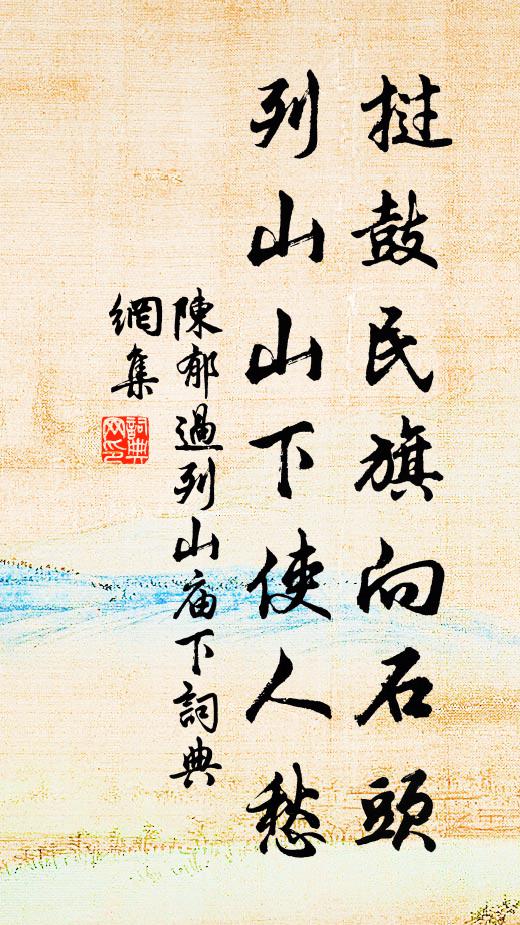 挝鼓民旗向石頭
列山山下使人愁
陳郁過列山庙下詞典
網集
詞典
网印